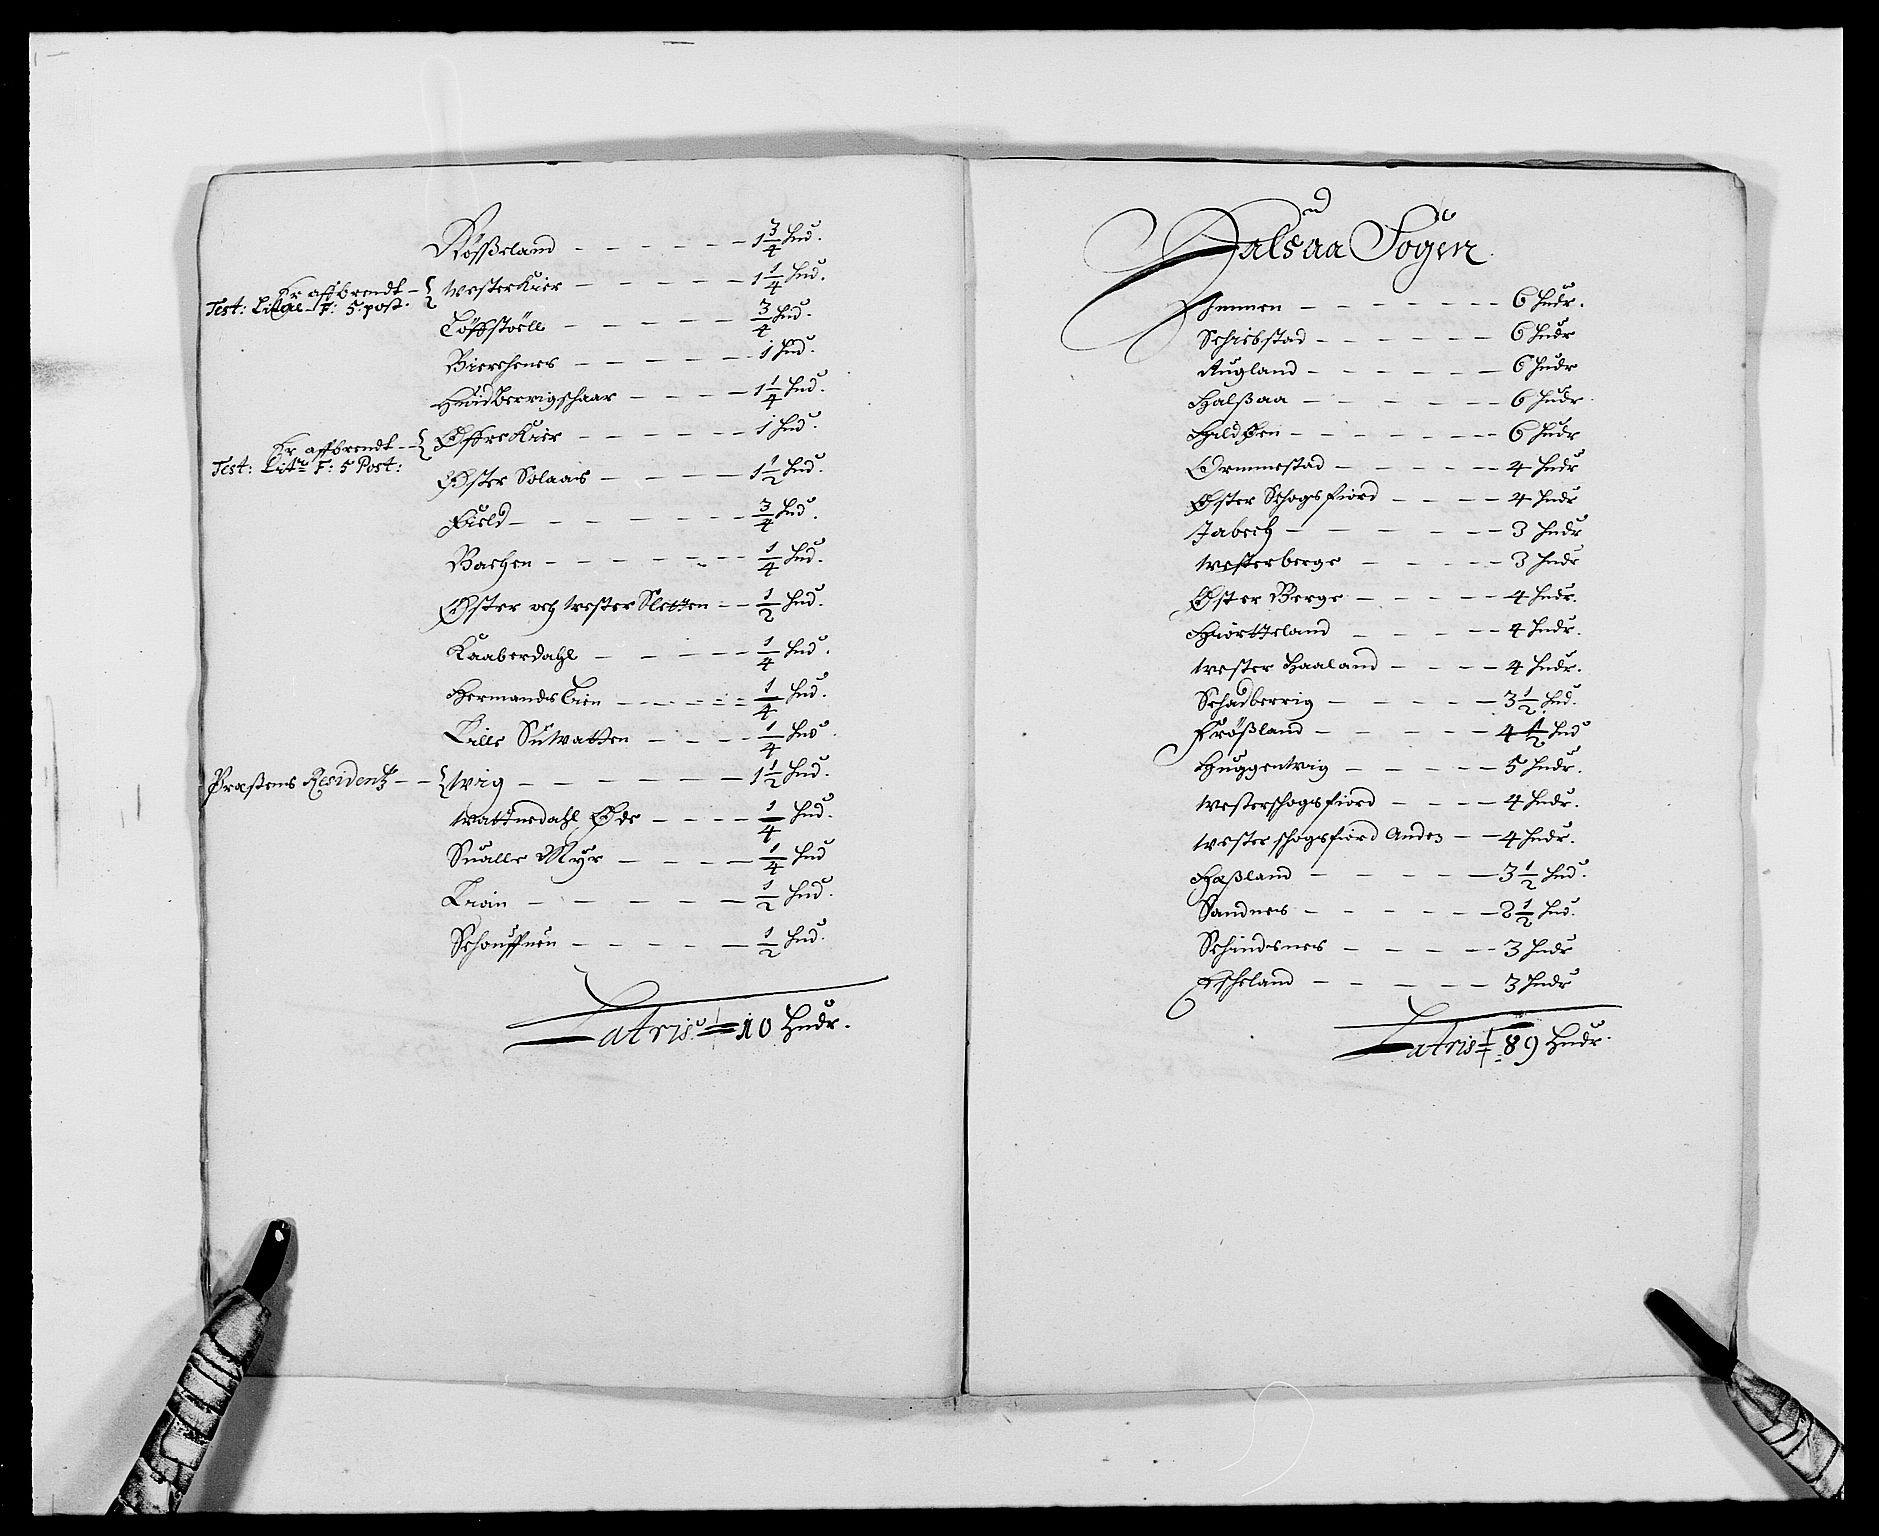 Røsseland – – – – – – 1 3/4 hud.
Er affbrendt – { westerKier – – – – – – 1 1/4 hud.
Test: F: 5. post.
Løffstøell – – – – – – 3/4 hud.
Bierchenes – – – – – – 1 hud.
Hundberrigschaar – – – – 1 1/4 hud.
Er affbrendt – – { ØffreKier – – – – – – 1 hud.
Test: Litr F: 5 Post:
Øster Solaas – – – – – 1 1/2 hud.
Field – – – – – – – 3/4 hud.
Bachen – – – – – – – 1/4 hud.
Øster och wester Sletten – – 1/2 hud.
Kaaberdahl – – – – – 1/4 hud.
Hermands Lien – – – – – 1/4 hud.
Lille Suwatten – – – – 1/4 hud.
Præstens Residentz – – { wiig – – – – – – 1 1/2 hud.
wattnedahl Øde – – – – 1/4 hud.
Sualle Myr – – – – 1/4 hud
Lian – – – – – – 1/2 hud.
Schouffuen – – – – – 1/2 hud.
Latris = 10 Hudr.
Halsaa Sogen
Ammen – – – – – – – 6 hudr.
Schiebstad – – – – – – 6 hudr
Augland – – – – – – 6 hudr
Halsaa – – – – – – 6 hudr.
– – – – – – 6 hudr
Ormmestad – – – – – 4 hudr
Øster Schogsfiord – – – – 4 hudr
Jabech – – – – – – 3 hudr
westerberge – – – – – 3 hudr
Øster Berge – – – – – 4 hudr.
Hiortteland – – – – – 4 hudr.
wester Haaland – – – – 4 hudr.
Schadberrig – – – – – 3 1/2 hud.
Frøsland – – – – – 4 1/2 hud
Huggenwiig – – – – – 5 hudr.
westerschogsfiord – – – – 4 hudr.
wester schogsfiord Anden – – 4 hudr.
Hasland – – – – – 3 1/2 hud.
Sandnes – – – – – – 2 1/2 hud.
Schindsnes – – – – – 3 hudr
Escheland – – – – – – 3 hudr
Latris = 89 Hudr.